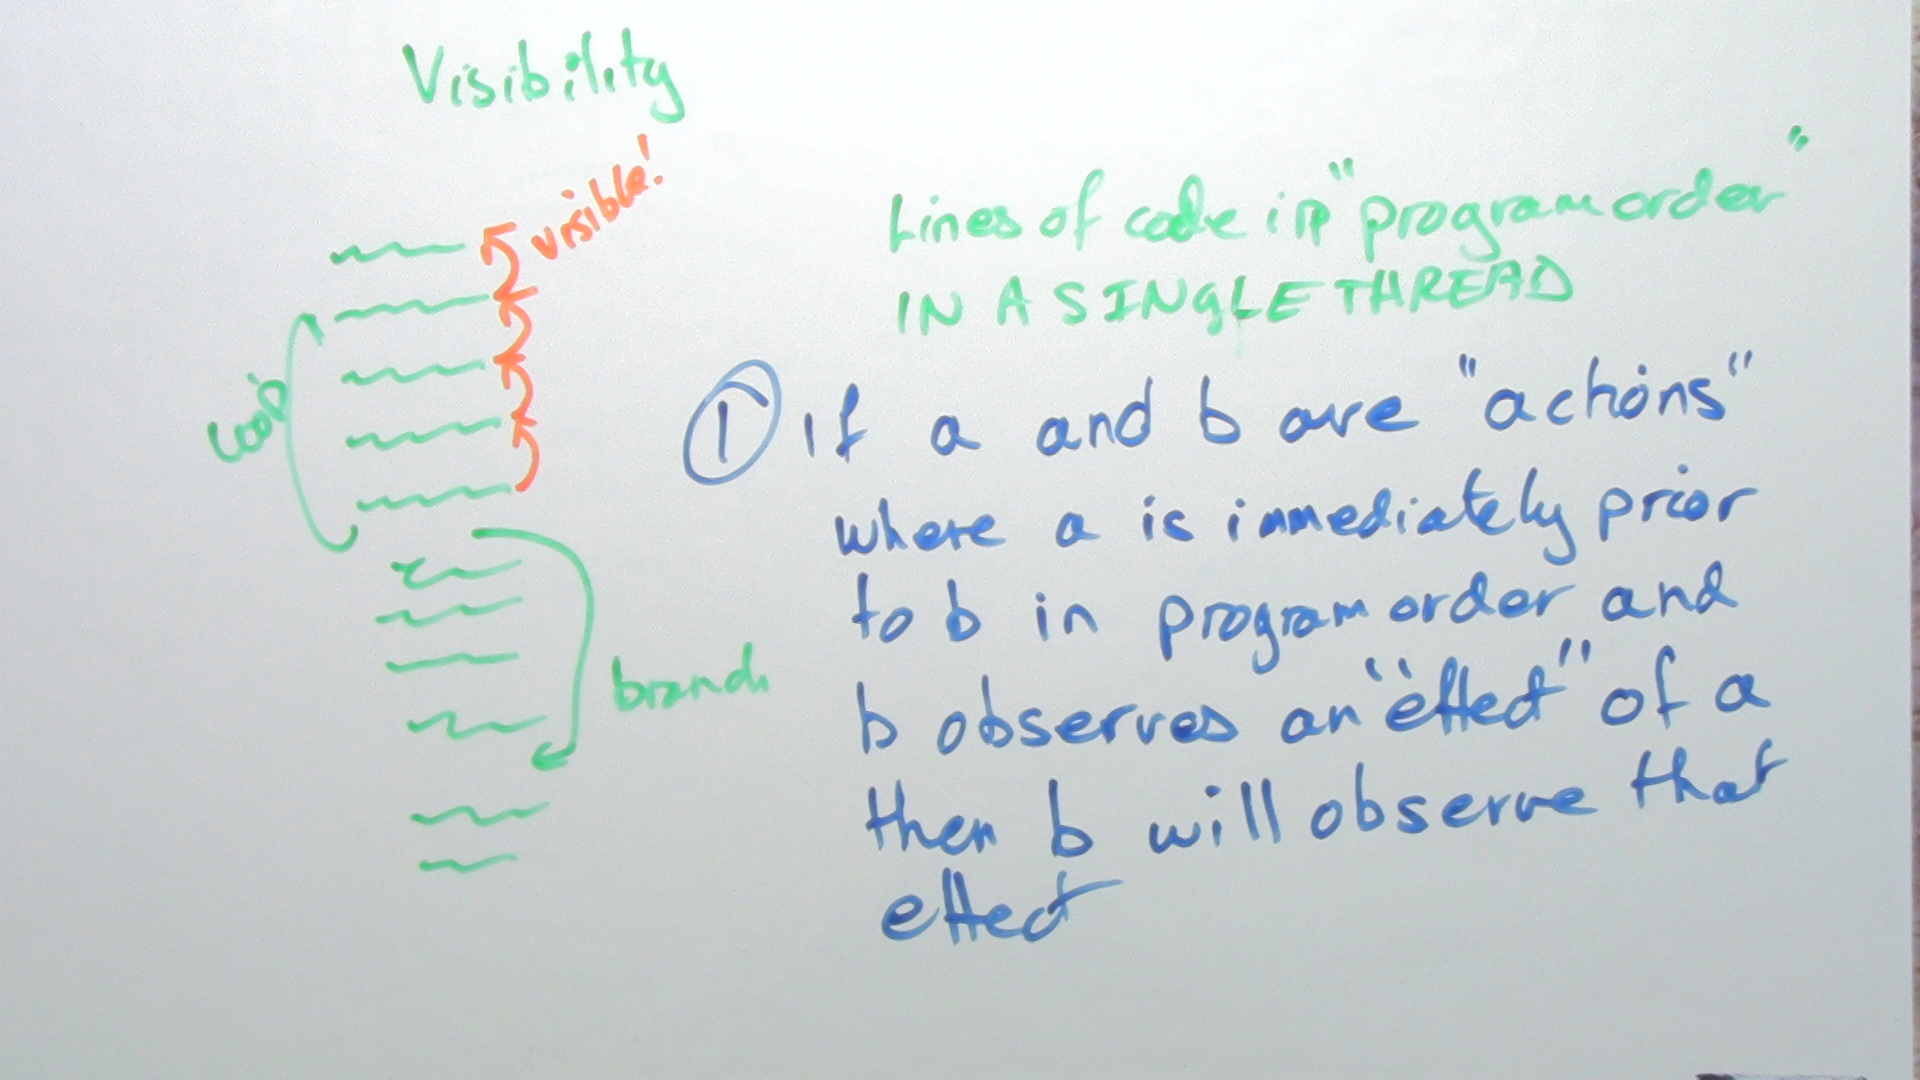 Visibility
visible!
Lines of code in "program order"
IN A SINGLE THREAD
loop
① If a and b are "actions"
where a is immediately prior
to b in program order and
b observes an "effect" of a
then b will observe that
effect
branch